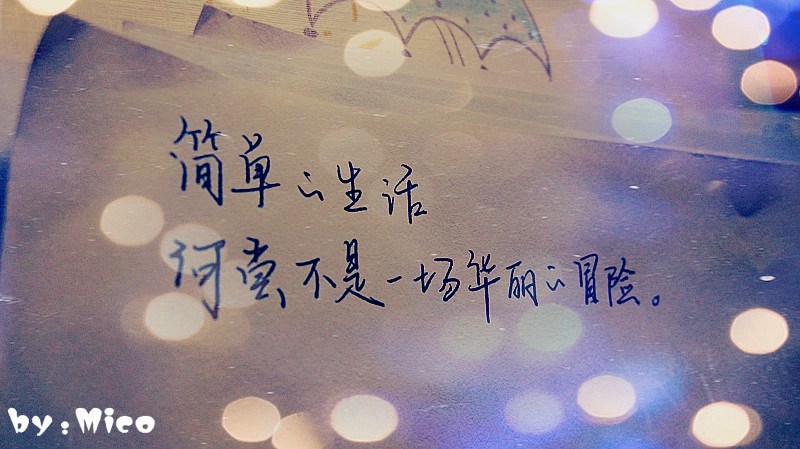 简单的生活
何尝不是一场华丽的冒险。
by:Mico